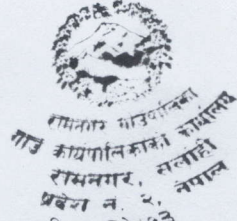 रामनगर गाउँपालिका
गाउँ कार्यपालिकाको कार्यालय
रामनगर, सर्लाही
प्रदेश नं. २, नेपाल